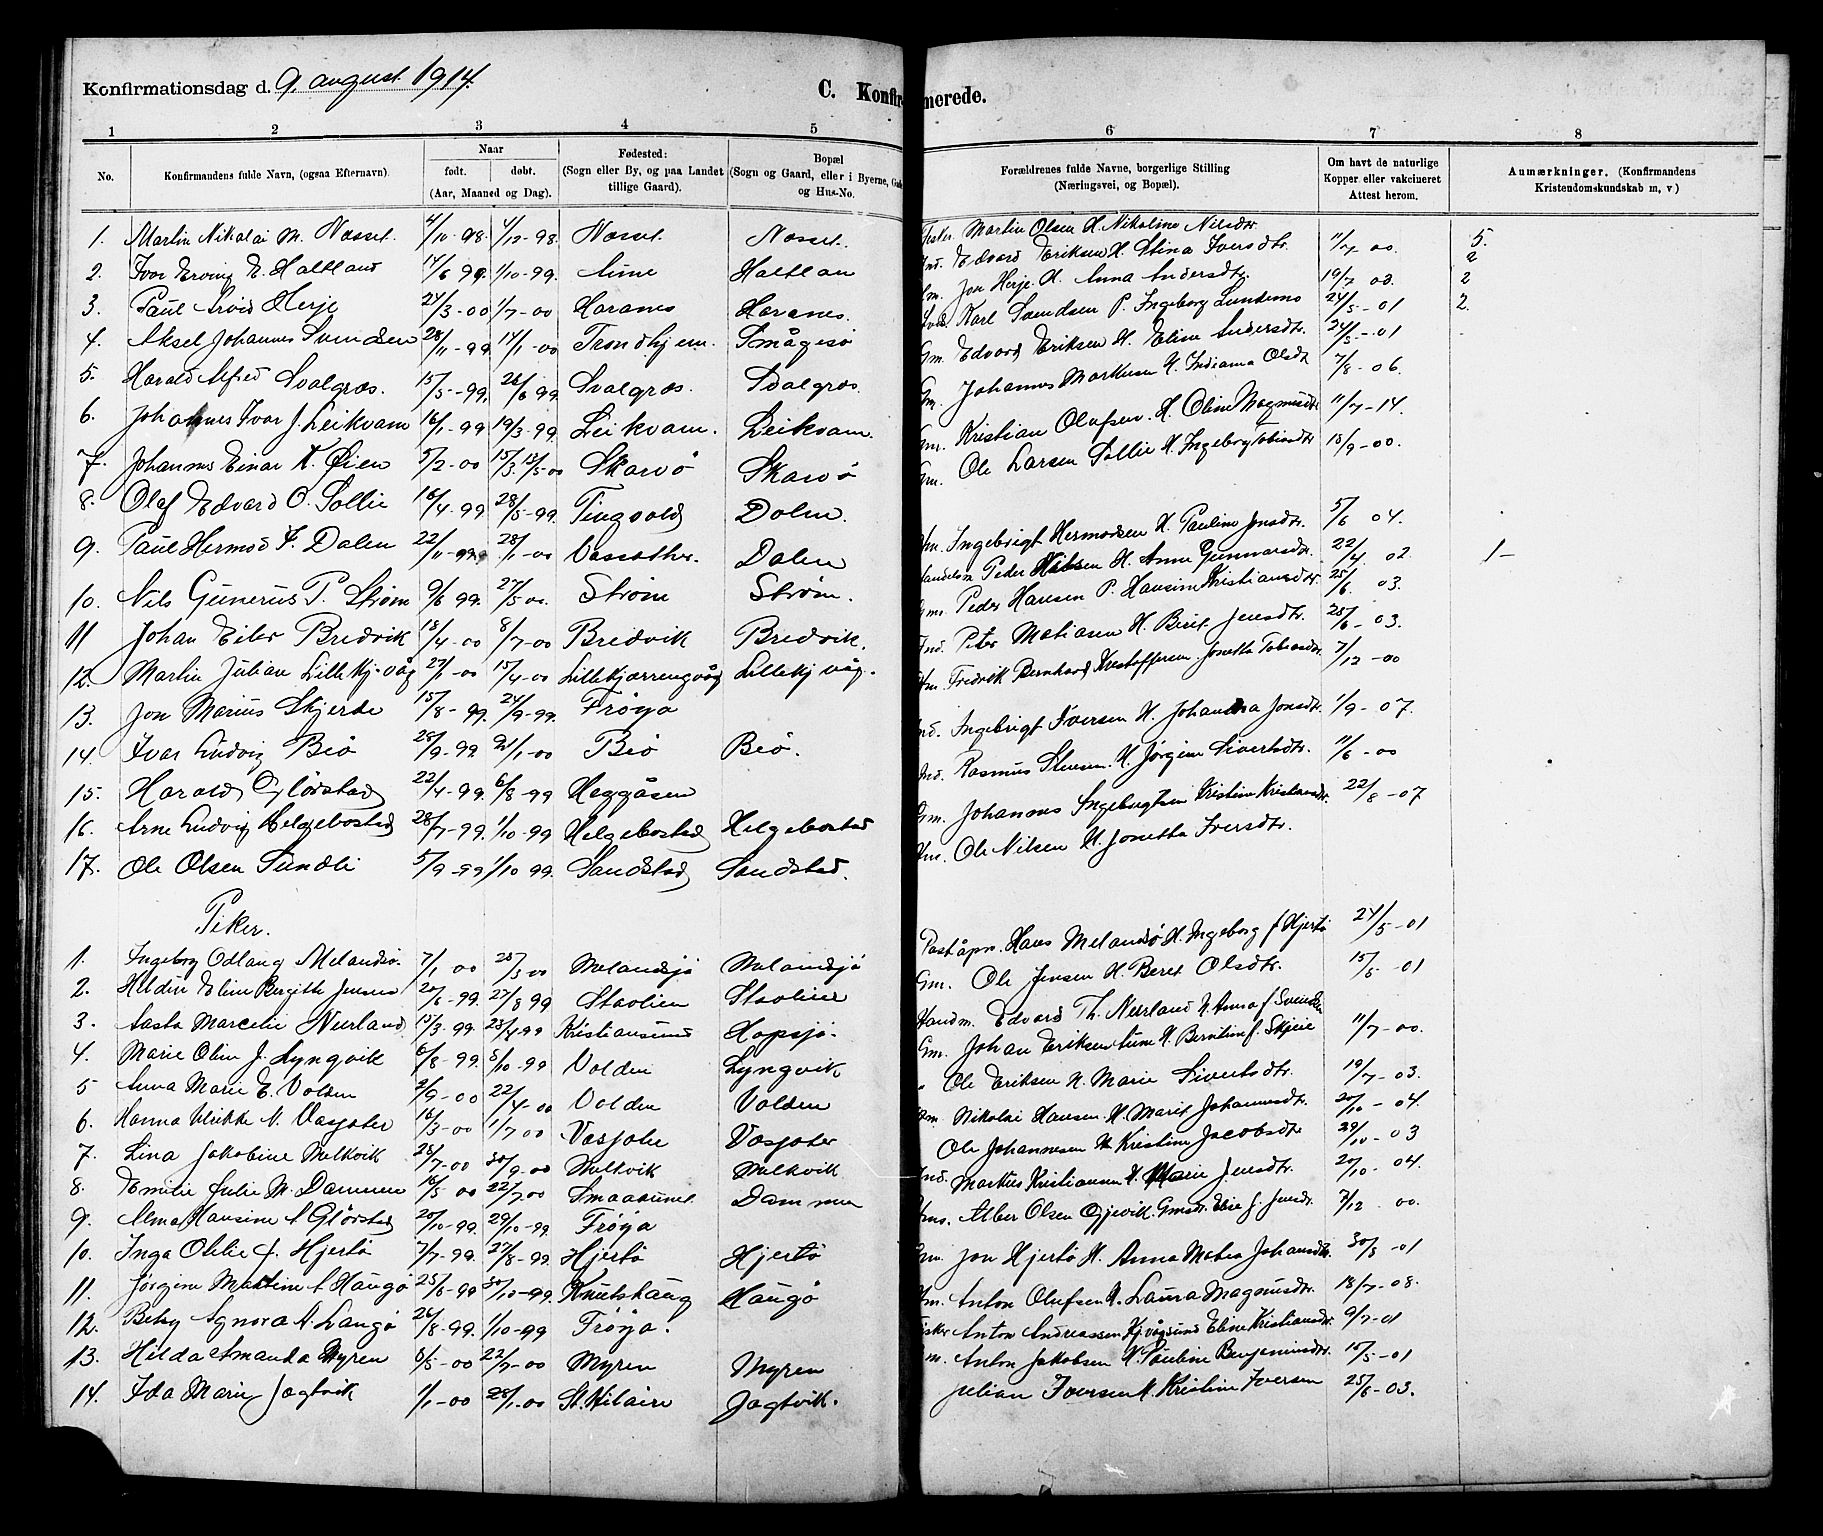 Konfirmationsdag d. 9. august 1914.
C. Konfirmerede.
1 2 3 4 5 6 7 8
No.
Konfirmandens fulde Navn, (ogsaa Efternavn).
Naar
født. døbt.
(Aar, Maaned og Dag).
Fødested:
(Sogn eller By, og paa Landet
tillige Gaard).
Bopæl
(Sogn og Gaard, eller i Byerne,
og Hus-No.
Forældrenes fulde Navne, borgerlige Stilling
(Næringsvei, og Bopæl).
Om havt de naturlige
Kopper eller vakcineret
Attest herom.
Anmærkninger. (Konfirmandens
Kristendomskundskab m, v)
1. Martin Nikolai M. Nesset. 4/10-98. 4/12-98. Nesset. Nesset. Martin Olsen H. Nikoline Nilsdtr. 5.
2. Ivar Erving E. Haltland 14/6 99. 1/10-99. Aune Haltlan Edvard Eriksen H. Stina Iversdtr. 11/7 00. 2
3. Paul Arvid Herje 24/3-00 1/7-00 Haranes Haranes. Jon Herje H. Anna Andersdtr. 19/7 03. 2
4. Aksel Johannes Svendsen 28/11-99. 14/1-00 Trondhjem. Småge sø Karl Svendsen P. Ingeborg Lundemo 24/5-01 2.
5. Harald Alfred Svalgres. 15/5-99. 26/6 99. Svalgres. Svalgres Edvard Eriksen H. Eline Andersdtr. 24/5-01
6. Johannes Ivar J. Leikvam 16/1-99 19/3-99. Leikvam. Leikvam. Gm. Johannes Markusen H. Indianna Olsdt 7/8-06.
7. Johannes Einar K. Øien 5/2-00 Skarvø Skarvø Gm. Kristian Olafsen. H. Oline Magnusdtr 11/7-14.
8. Olaf Edvard O. Sollie 16/4-99 28/5-99. Tingvold Dolen. Gm. Ole Larsen Sollie H. Ingeborg Tobiasdtr 18/9-00.
9. Paul Hermod I. Dalen 22/11-99. 28/1-00 Vassæther. Dalen Ingebrigt Hermodsen H. Pauline Jonsdtr. 5/6 04.
10. Nils Gunerus P. Strøm 9/6 99. 27/5 00. Strøm Strøm. Peder Nilsen H. Anne Gunnarsdtr. 22/4. 02 1-
11 Johan Eiler Bredvik 18/4-00 8/7-00 Bredvik Bredvik. Peder Hansen P. Hansine Kristiansdtr. 25/6 03.
12. Martin Julian Lillekj.våg 27/1-00 15/4-00 Lillekjærrengvåg Lillekj våg. Peter Matiasen H. Beret Jensdtr. 25/6-03.
13. Jon Marius Skjerde 15/8-99. 24/9-99. Frøya Fredrik Bernhard Kristoffersen. Jonetta Tobiasdtr 7/12-00
14. Ivar Ludvig Beø 28/9-99 21/1-00 Beø Beø. Ingebrigt Iversen H. Johanna Jonsdtr. 1/9-07.
15. Harald Glørstad 22/4-99. 6/8-99 Heggåsen Rasmus Stensen. H. Jørgine Sivertsdtr. 11/6-00
16. Arne Ludvig Helgebostad 28/7-99. 1/10-99 Helgebostad Helgebostad Gm. Johannes Ingebrigtsen Kristine Kristensdtr. 22/8-07
17. Ole Olsen Sundli 5/9-99 1/10 99. Sandstad Sandstad. Ole Nilsen H. Jonetta Iversdtr.
Piker.
1. Ingeborg Odlaug Melandsø. 7/1 00 25/3 00 Melandsjø Melandsjø Poståpn. Hans Melandsø H. Ingeborg f Hjertø 24/5-01
2. Heldine Eline Bergitte Jensen 20/6-99. 27/8 99 Stavlien Stavlien Gm. Ole Jensen H. Beret Olsdtr. 15/5-01
3. Aasta Marcelie Neerland 15/3.99. 23/4-99 Kristiansund Hopsjø. Handm. Edvard Th. Neerland H. Anna f Svendsen
4. Marie Oline J. Lyngvik 6/8-99. 8/10-99 Volden Lyngvik Gm. Johan Eriksen Aune H. Berntine f. Skjeie 11/7-00.
5 Anna Marie E. Volden 2/9-00 22/4-00 Volden Volden " Ole Eriksen H. Marie Sivertsdtr. 19/7-03.
6. Hanna Ulrikke N. Vasjøter 16/3-00 1/7 00 Vasjøter Vasjøter Nikolai Hansen. H. Marit Johannesdtr. 20/10-04.
7. Lina Jakobine Melkvik 28/7-00 30/9-00 Melkvik Melkvik Ole Johannesen H Kristine Jacobsdtr 29/10-03
8. Emilie Julie M. Dammen 16/5 00 22/7 00 Smaasundet Dammen Markus Kristiansen H. Marie Jensdtr. 20/10-04.
9. Alma Hansine A Glørstad 20/10-99. 29/10-99. Frøya Alber Olsen Gjevik. Elise J. Jensdtr. 7/12 00.
10. Inga Otelie J. Hjertø 7/7-99. 27/8-99. Hjertø Hjertø Jon Hjertø H. Anna Matea Johansdtr. 30/5-01
11. Jørgine Martine A Haugø 25/6-99 30/10-99. Knutshaug Haugø Anton Olufsen H. Laura Magnusdtr. 18/7-08.
12. Betsy Agnora A. Langø 26/8-99. 1/10-99 Frøya. Anton Andreassen Kjvågsund Eline Kristiansdtr. 9/7-01
13. Hilda Amanda Myren 6/5-00 22/7-00 Myren Myren Anton Jakobsen H. Pauline Benjaminsdtr. 15/5-01
14. Ida Marie Jagtvik 1/1-00 28/1-00 St. Hilaire Jagtvik. Julian Iversen H. Kristine Iversen 25/6-03.